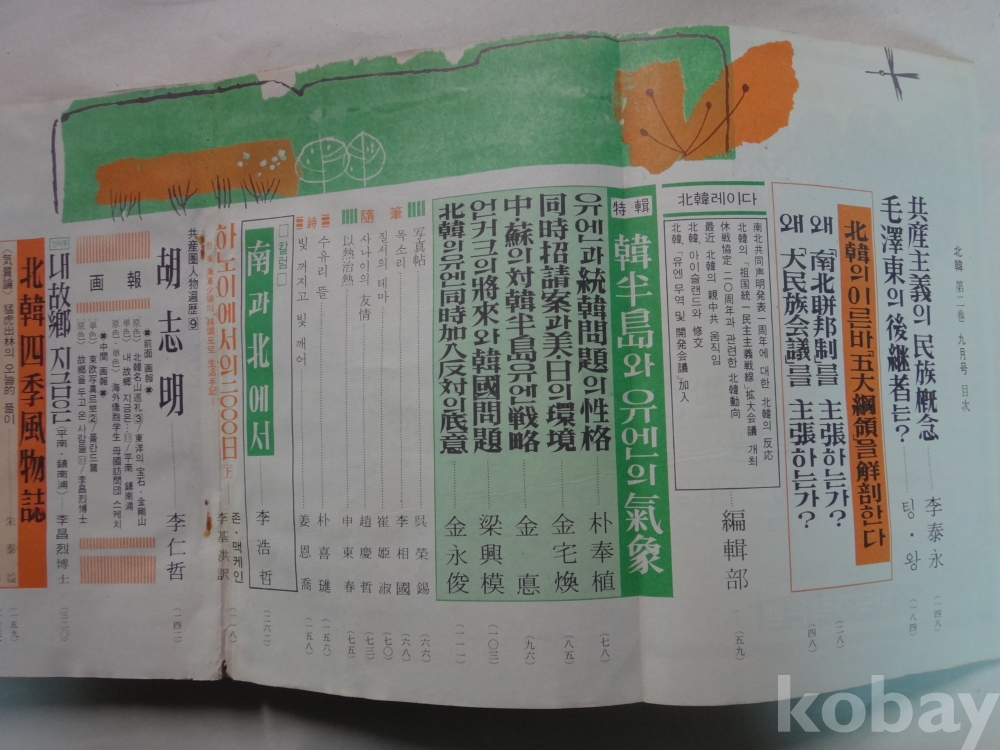 北韓 第二卷 九月号 目次
共産主義의 民族槪念 李泰永 (一四八)
毛澤東의 後継者는? 팅·왕 (一八四)
北韓의 이른바「五大綱領」을 解剖한다
왜「南北聯邦制」를 主張하는가? (二八)
왜「大民族会議」를 主張하는가? (四八)
北韓레이다
南北共同声明発表 一周年에 대한 北韓의 反応
北韓의「祖国統一民主主義戦線」拡大会議 개최
休戦協定 二〇周年과 관련한 北韓動向
最近 北韓의 親中共 움직임
北韓, 아이슬랜드와 修交
北韓,「유엔 무역 및 開発会議」加入
編輯部 (五九)
特輯
韓半島와 유엔의 氣象
유엔과 統韓問題의 性格 朴奉植 (七八)
同時招請案과 美·日의 環境 金宅煥 (八五)
中·蘇의 対韓半島 유엔戦略 金 悳 (九六)
언커크의 將來와 韓國問題 梁興模 (一〇三)
北韓의 유엔同時加入反対의 底意 金永俊 (一一一)
隨筆
写真帖 吳榮錫 (六六)
목소리 李相國 (六八)
질서의 테마 崔姫淑 (七〇)
사나이의 友情 趙慶哲 (七三)
以熱治熱 申東春 (七五)
詩
수유리 뜰 朴喜璡 (一五六)
빛 꺼지고 빛 깨어 姜恩喬 (一五八)
칼럼
南과 北에서 李浩哲 (二六二)
하노이에서의 三〇〇〇日 下
존·맥케인
李基洪訳 (一一八)
共産圏人物遍歷 ⑨
胡志明 李仁哲 (一四二)
画報
※前面 画報※
原色) 北韓名山巡礼③/東洋의 宝石·金剛山
単色) 내 故鄕 지금은/平南 鎭南浦
原色·単色) 海外僑胞学生 母國訪問団 스케치
※中間 画報※
単色) 東欧写真르뽀②/폴란드篇
原色) 故鄕을 두고 온 사람들/李昌烈博士
내 故鄕 지금은 (平南·鎭南浦) 李昌烈博士
北韓四季風物誌
〈気質論〉猛虎出林의 오늘的 풀이 朱泰益 (一五九)
kobay